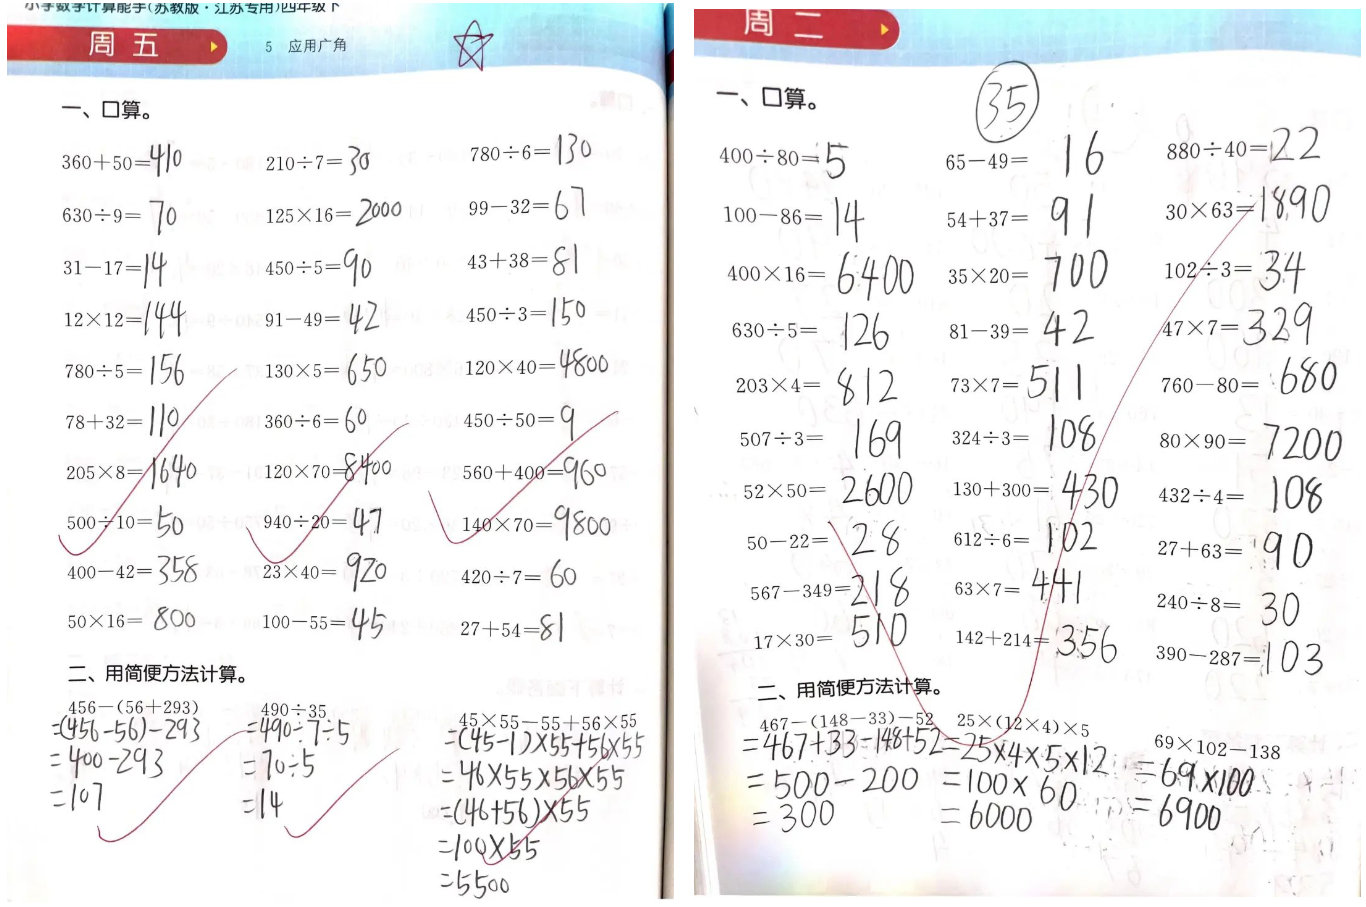 小学数学计算能手(苏教版·江苏专用)四年级下
周五
5 应用广角
一、口算。
360+50=410 210÷7=30 780÷6=130
630÷9=70 125×16=2000 99-32=67
31-17=14 450÷5=90 43+38=81
12×12=144 91-49=42 450÷3=150
780÷5=156 130×5=650 120×40=4800
78+32=110 360÷6=60 450÷50=9
205×8=1640 120×70=8400 560+400=960
500÷10=50 940÷20=47 140×70=9800
400-42=358 23×40=920 420÷7=60
50×16=800 100-55=45 27+54=81
二、用简便方法计算。
456-(56+293) 490÷35 45×55-55+56×55
=(456-56)-293 =490÷7÷5 =(45-1)×55+56×55
=400-293 =70÷5 =46×55×56×55
=107 =14 =(46+56)×55
=100×55
=5500
周二
35
一、口算。
400÷80=5 65-49=16 880÷40=22
100-86=14 54+37=91 30×63=1890
400×16=6400 35×20=700 102÷3=34
630÷5=126 81-39=42 47×7=329
203×4=812 73×7=511 760-80=680
507÷3=169 324÷3=108 80×90=7200
52×50=2600 130+300=430 432÷4=108
50-22=28 612÷6=102 27+63=90
567-349=218 63×7=441 240÷8=30
17×30=510 142+214=356 390-287=103
二、用简便方法计算。
467-(148-33)-52 25×(12×4)×5 69×102-138
=467+33-148+52 =25×4×5×12 =69×100
=500-200 =100×60 =6900
=300 =6000